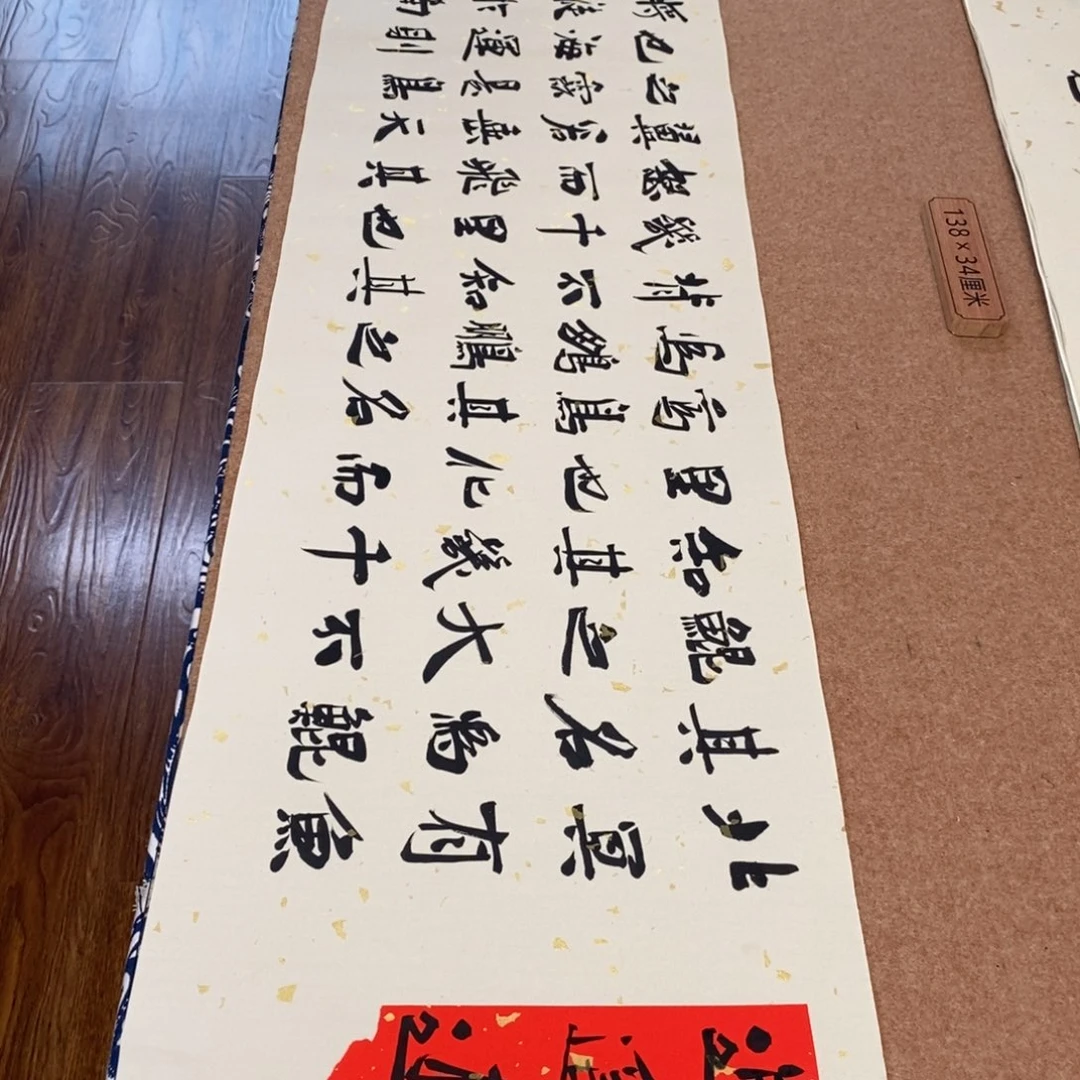 北冥有魚
其名為鯤
鯤之大不
知其幾千
里也化而
為鳥其名
為鵬鵬之
背不知其
幾千里也
怒而飛其
翼若垂天
之雲是鳥
也海運則
將徙於南
138×34厘米